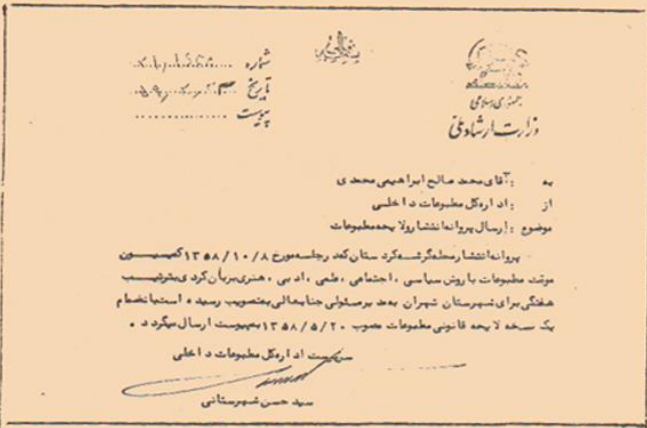 بسمه تعالی
جمهوری اسلامی
وزارت ارشاد ملی
شماره
تاریخ
پیوست
به : آقای محمد صالح ابراهیمی محمدی
از : اداره کل مطبوعات داخلی
موضوع : ارسال پروانه انتشار و لایحه مطبوعات
پروانه انتشار مجله گرشه کردستان که در جلسه مورخ ۱۳۵۸/۱۰/۸ کمیسیون
موقت مطبوعات با روش سیاسی ، اجتماعی ، علمی ، ادبی ، هنری بزبان کردی بترتیب
هفتگی برای شهرستان تهران بمد برمسئولی جنابعالی بتصویب رسیده است بانضمام
یک نسخه لایحه قانونی مطبوعات مصوب ۱۳۵۸/۵/۲۰ بپیوست ارسال میگردد .
سرپرست اداره کل مطبوعات داخلی
سید حسن شهرستانی